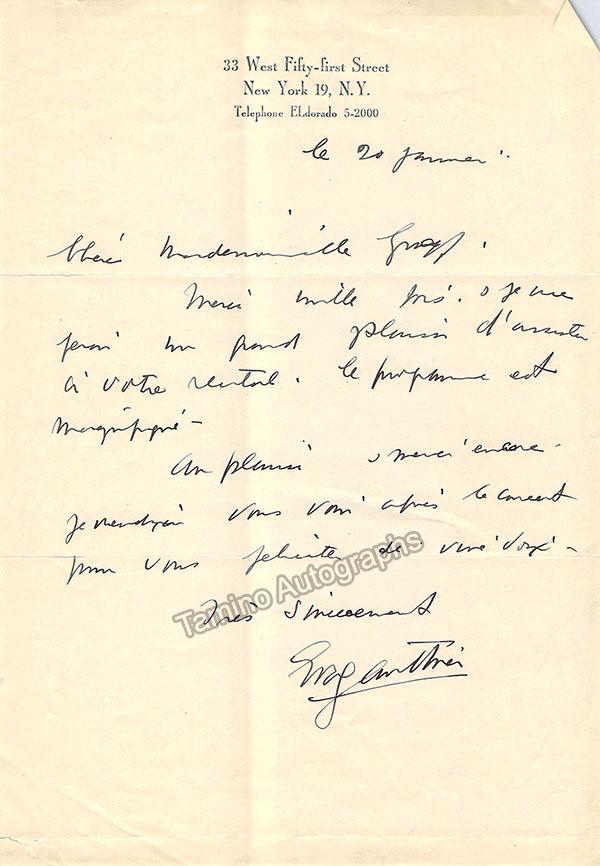 33 West Fifty-first Street
New York 19, N.Y.
Telephone ELdorado 5-2000
le 20 janvier
Chère Mademoiselle
Merci mille fois. je me
ferai un grand plaisir d'assister
à votre recital. le programme est
magnifique -
Au plaisir & merci encore -
je viendrai vous voir après le concert
pour vous feliciter de vive voix -
Très Sincerement
Eva Gauthier
Tamino Autographs